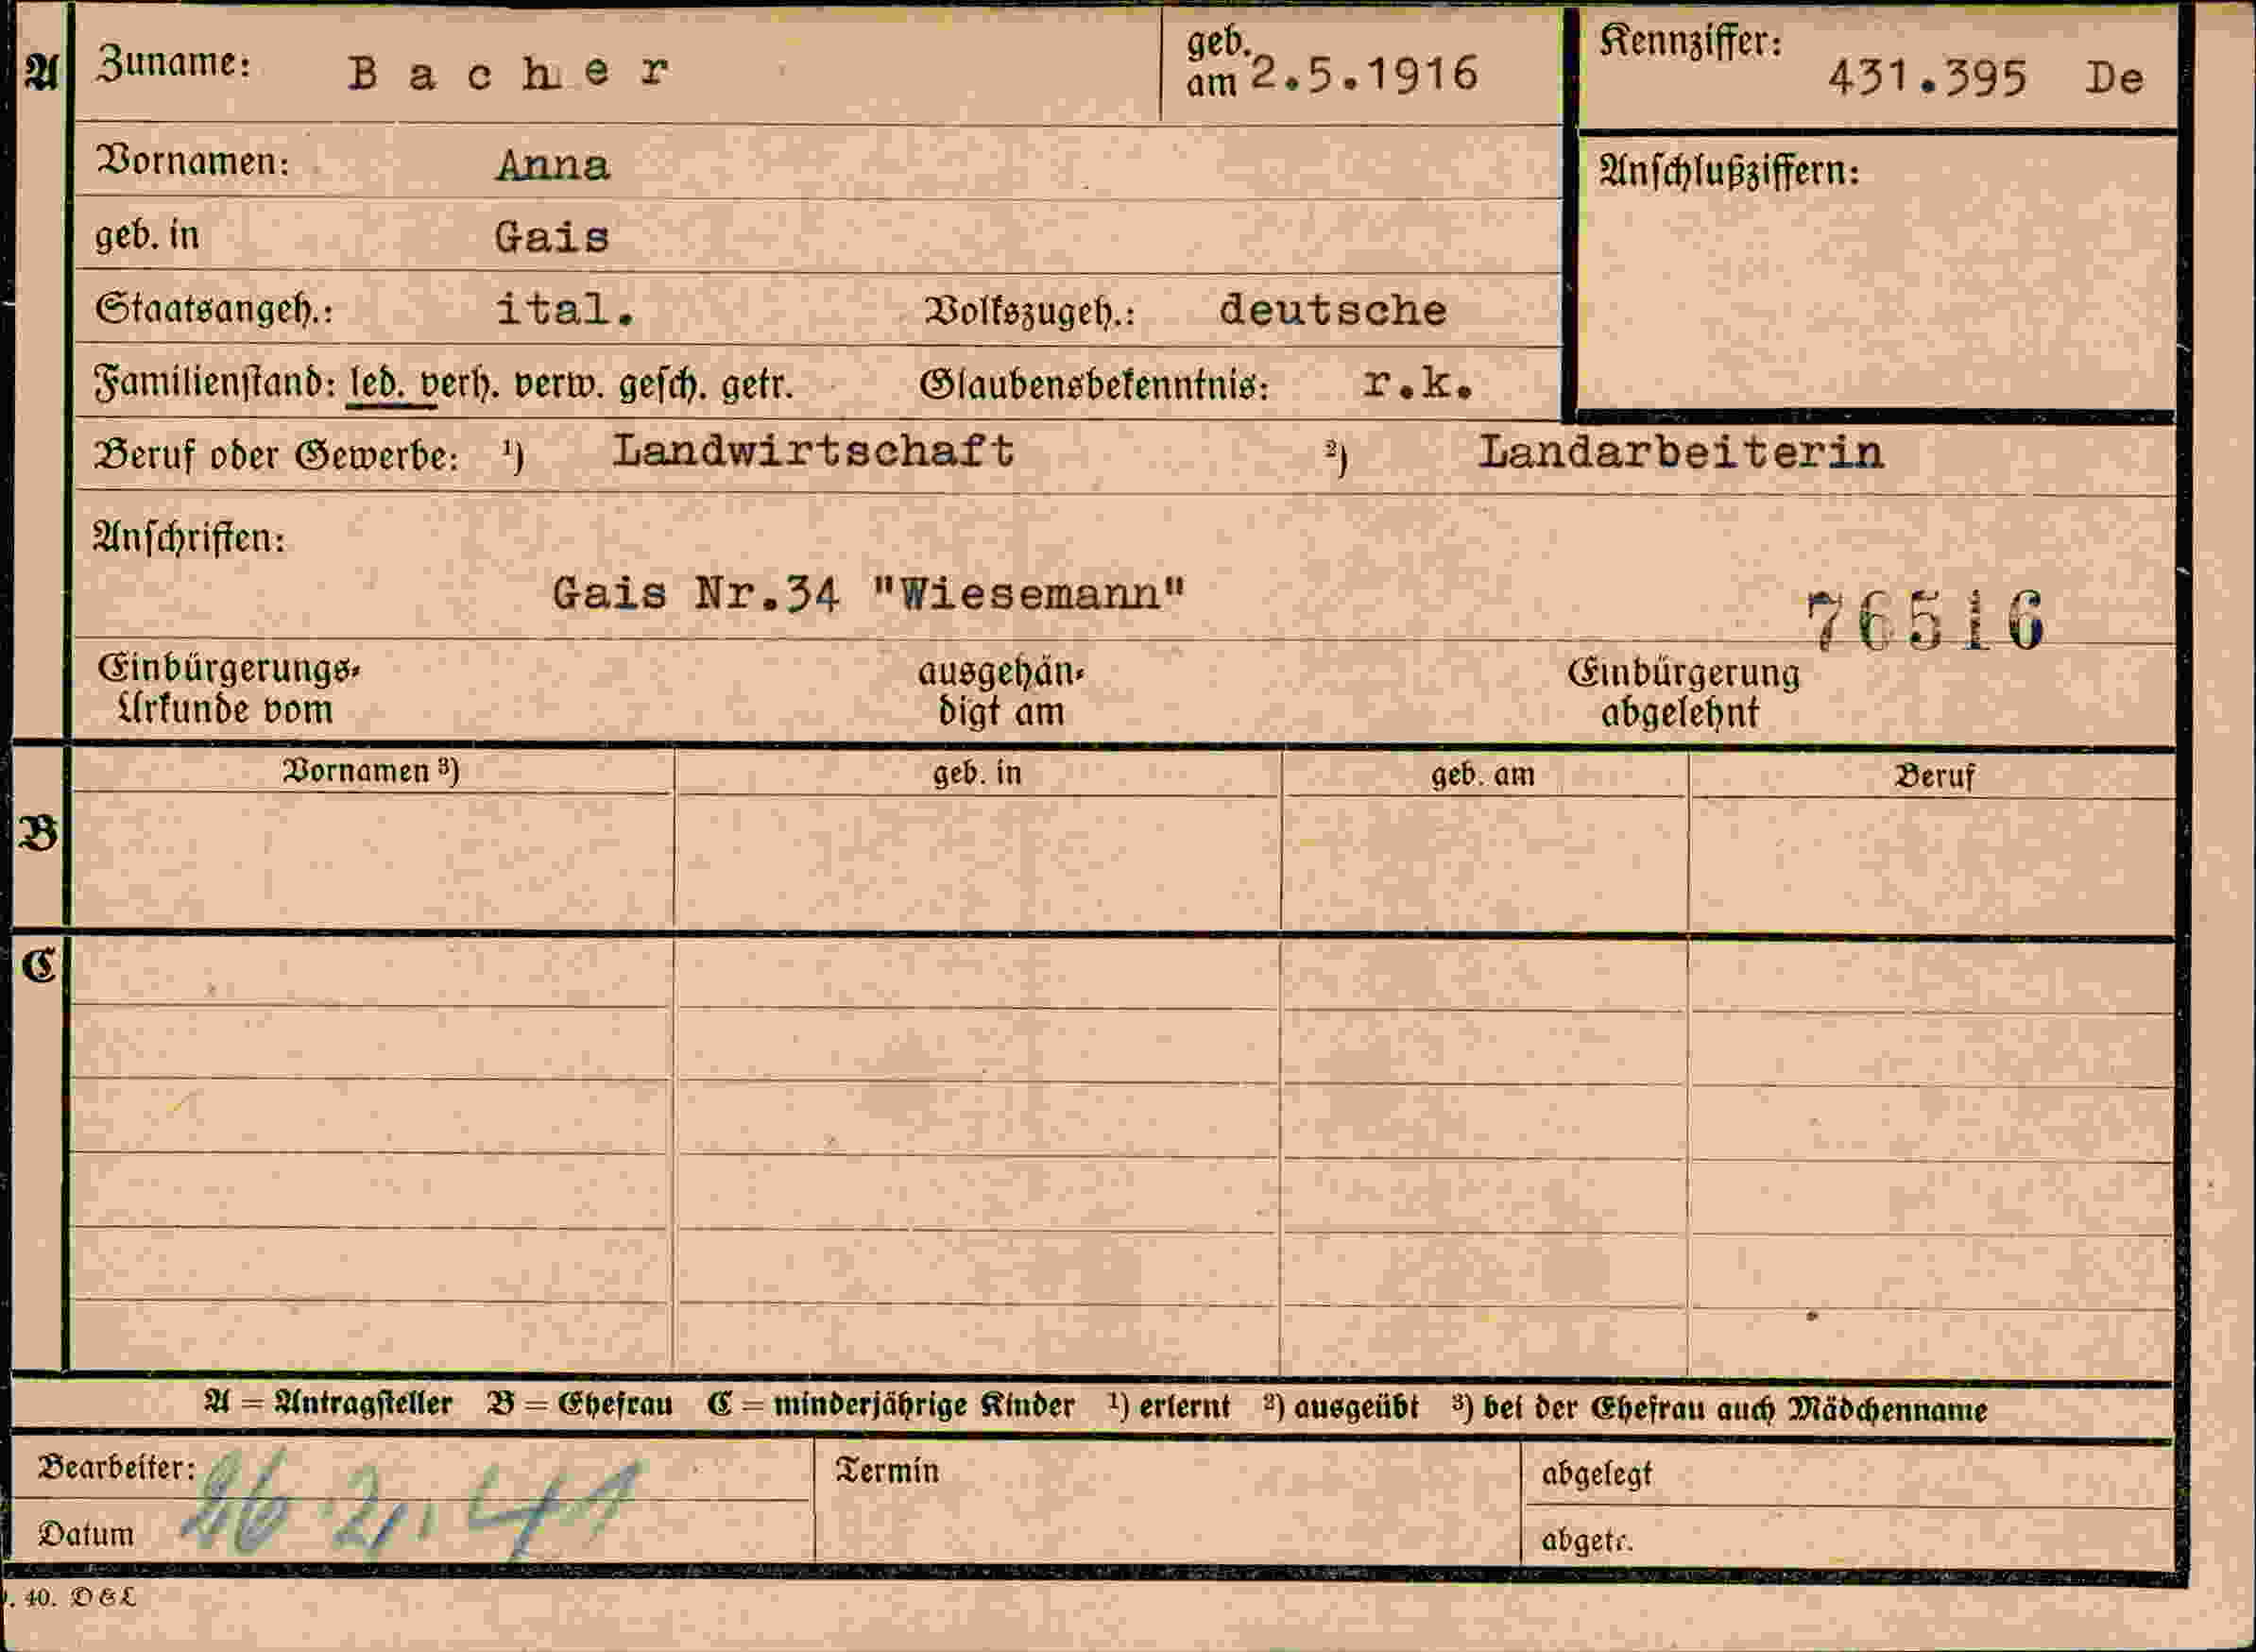 A Zuname: Bacher geb. am 2.5.1916 Kennziffer: 431.395 De
Vornamen: Anna Anschlußziffern:
geb. in Gais
Staatsangeh.: ital. Volkszugeh.: deutsche
Familienstand: led. verh. verw. gesch. getr. Glaubensbekenntnis: r.k.
Beruf oder Gewerbe: ¹) Landwirtschaft ²) Landarbeiterin
Anschriften:
Gais Nr.34 "Wiesemann" 76516
Einbürgerungs- ausgehän- Einbürgerung
Urkunde vom digt am abgelehnt
Vornamen ³) geb. in geb. am Beruf
B
C
A = Antragsteller B = Ehefrau C = minderjährige Kinder ¹) erlernt ²) ausgeübt ³) bei der Ehefrau auch Mädchenname
Bearbeiter: Termin abgelegt
Datum 26.2.41 abgetr.
. 40. D & L